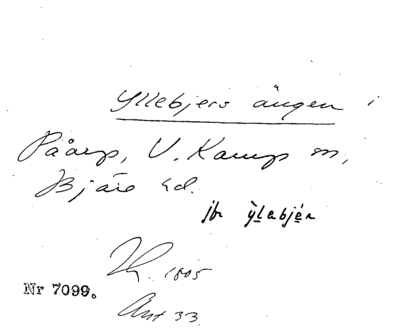 Yllebjers ängen i
Påarp, V. Karup sn,
Bjäre hd.
jfr ylabjér
1805
Nr 7099.
Ant 33